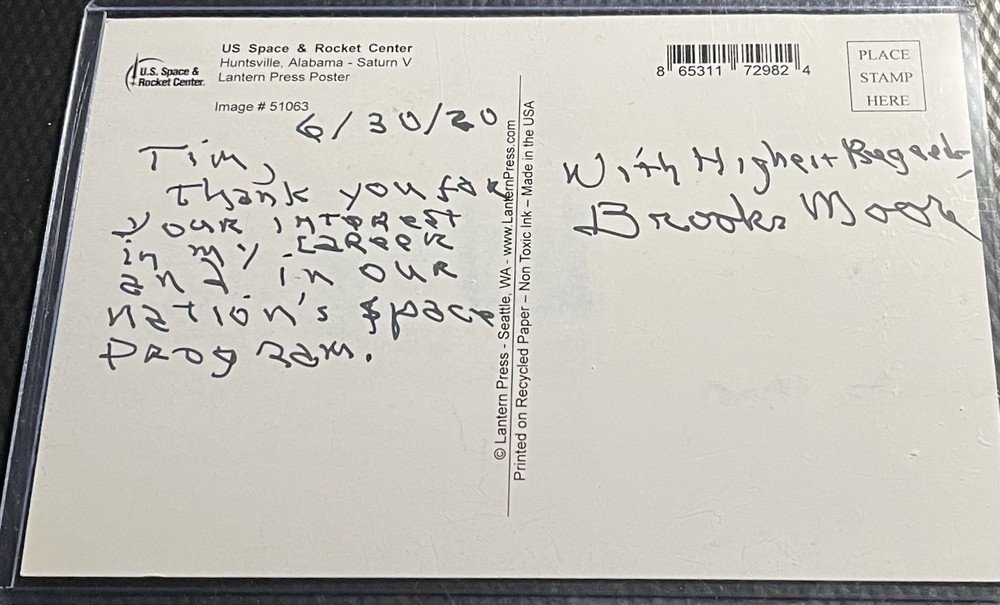 U.S. Space &
Rocket Center.
US Space & Rocket Center
Huntsville, Alabama - Saturn V
Lantern Press Poster
Image # 51063
6/30/20
Tim,
Thank you for
your interest
in my career
and in our
nation's space
program.
© Lantern Press - Seattle, WA - www.LanternPress.com
Printed on Recycled Paper – Non Toxic Ink – Made in the USA
8 65311 72982 4
PLACE
STAMP
HERE
With Highest Regards
Brooks Moore